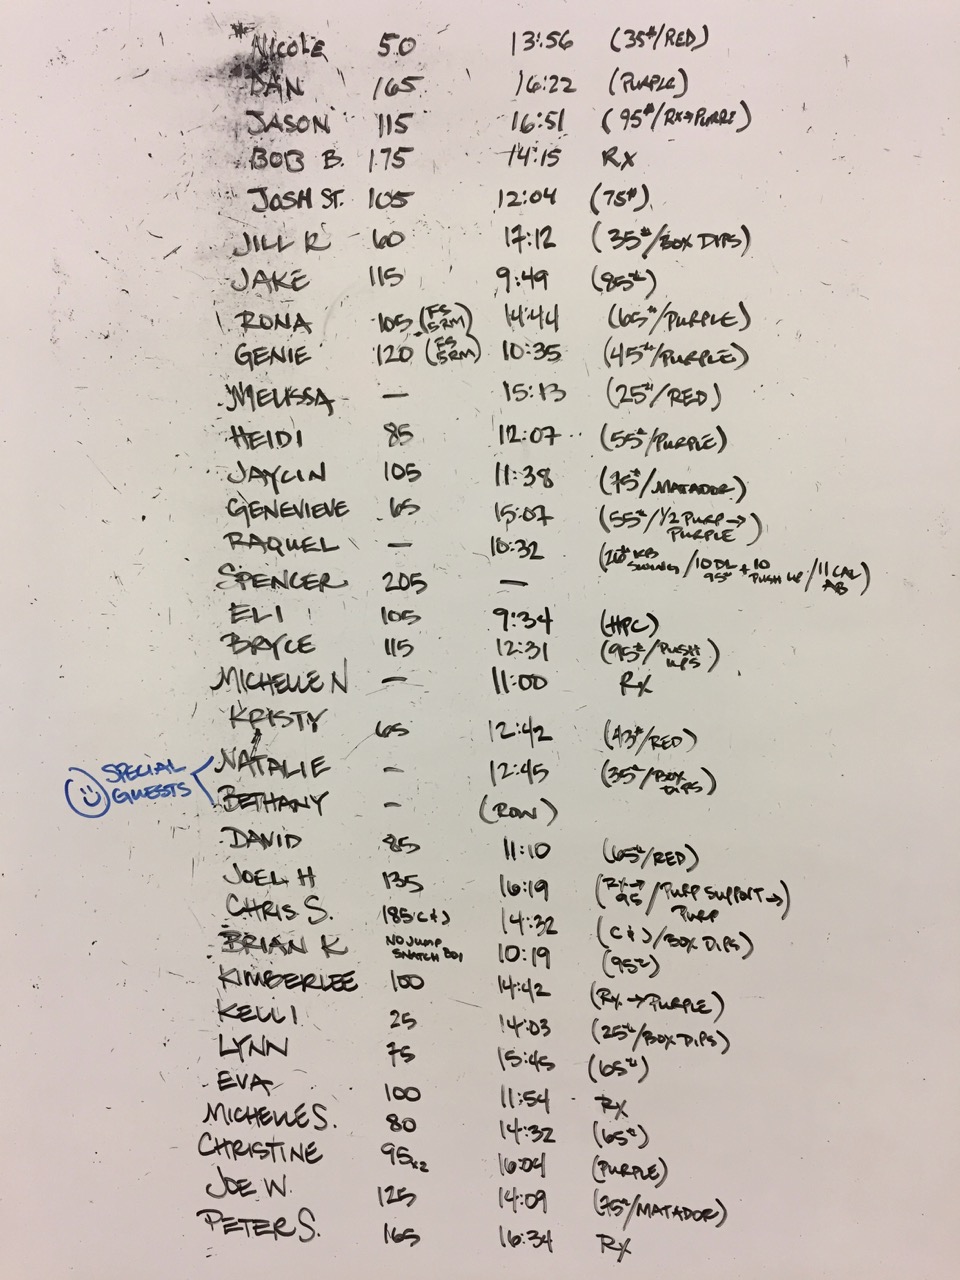 *NICOLE 50 13:56 (35#/RED)
DAN 165 16:22 (PURPLE)
JASON 115 16:51 (95#/RX→PURPLE)
BOB B. 175 14:15 RX
JOSH ST. 105 12:04 (75#)
JILL R 60 17:12 (35#/BOX DIPS)
JAKE 115 9:49 (85#)
RONA 105 (FS 5RM) 14:44 (65#/PURPLE)
GENIE 120 (FS 5RM) 10:35 (45#/PURPLE)
MELISSA — 15:13 (25#/RED)
HEIDI 85 12:07 (55#/PURPLE)
JAYLIN 105 11:38 (75#/MATADOR)
GENEVIEVE 65 15:07 (55#/1/2 PURP→ PURPLE)
RAQUEL — 10:32 (KB SWINGS/10 DL 95# + 10 PUSH UP/11 CAL AB)
SPENCER 205 —
ELI 105 9:34 (HPC)
BRYCE 115 12:31 (95#/PUSH UPS)
MICHELLE N — 11:00 RX
KRISTY 65 12:42 (43#/RED)
SPECIAL GUESTS
NATALIE - 12:45 (35#/BOX DIPS)
BETHANY - (ROW)
DAVID 85 11:10 (65#/RED)
JOEL H 135 16:19 (RX→95/PURP SUPPORT→ PURP)
CHRIS S. 185 (C+J) 14:32 (C+J/BOX DIPS)
BRIAN K NO JUMP SNATCH BO! 10:19 (95#)
KIMBERLEE 100 14:42 (RX→PURPLE)
KELLI 25 14:03 (25#/BOX DIPS)
LYNN 75 15:45 (65#)
EVA 100 11:54 RX
MICHELLE S. 80 14:32 (65#)
CHRISTINE 95x2 16:04 (PURPLE)
JOE W. 125 14:09 (75#/MATADOR)
PETER S. 165 16:34 RX